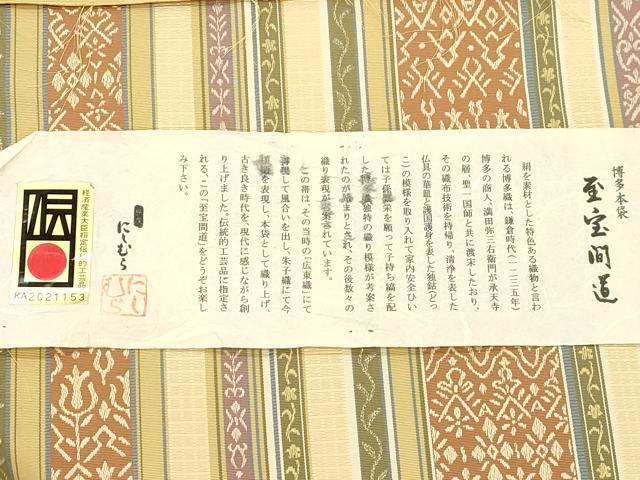 博多本袋
至宝間道
絹を素材とした特色ある織物と言わ
れる博多織は、鎌倉時代(一二三五年)
博多の商人、満田弥三右衛門が承天寺
の層、聖一国師と共に渡宋したおり、
その織布技術を持帰り、清浄を表した
仏具の華皿と護国護身を表した独鈷(どっ
こ)の模様を取り入れて家内安全ひい
ては子孫繁栄を願って子持ち縞を配
した博多織独特の織り模様が考案さ
れたのが始まりとされ、その後数々の
織り表現が考案されています。
この帯は、その当時の「広東織」にて
薄機して風合いを出し、朱子織にて今
を表現し、本袋として織り上げ、
古き良き時代を、現代に感じながら創
り上げました。伝統的工芸品に指定さ
れる、この「至宝間道」をどうぞお楽し
み下さい。
にしむら
にしむら
経済産業大臣指定伝統的工芸品
伝
KA2021153